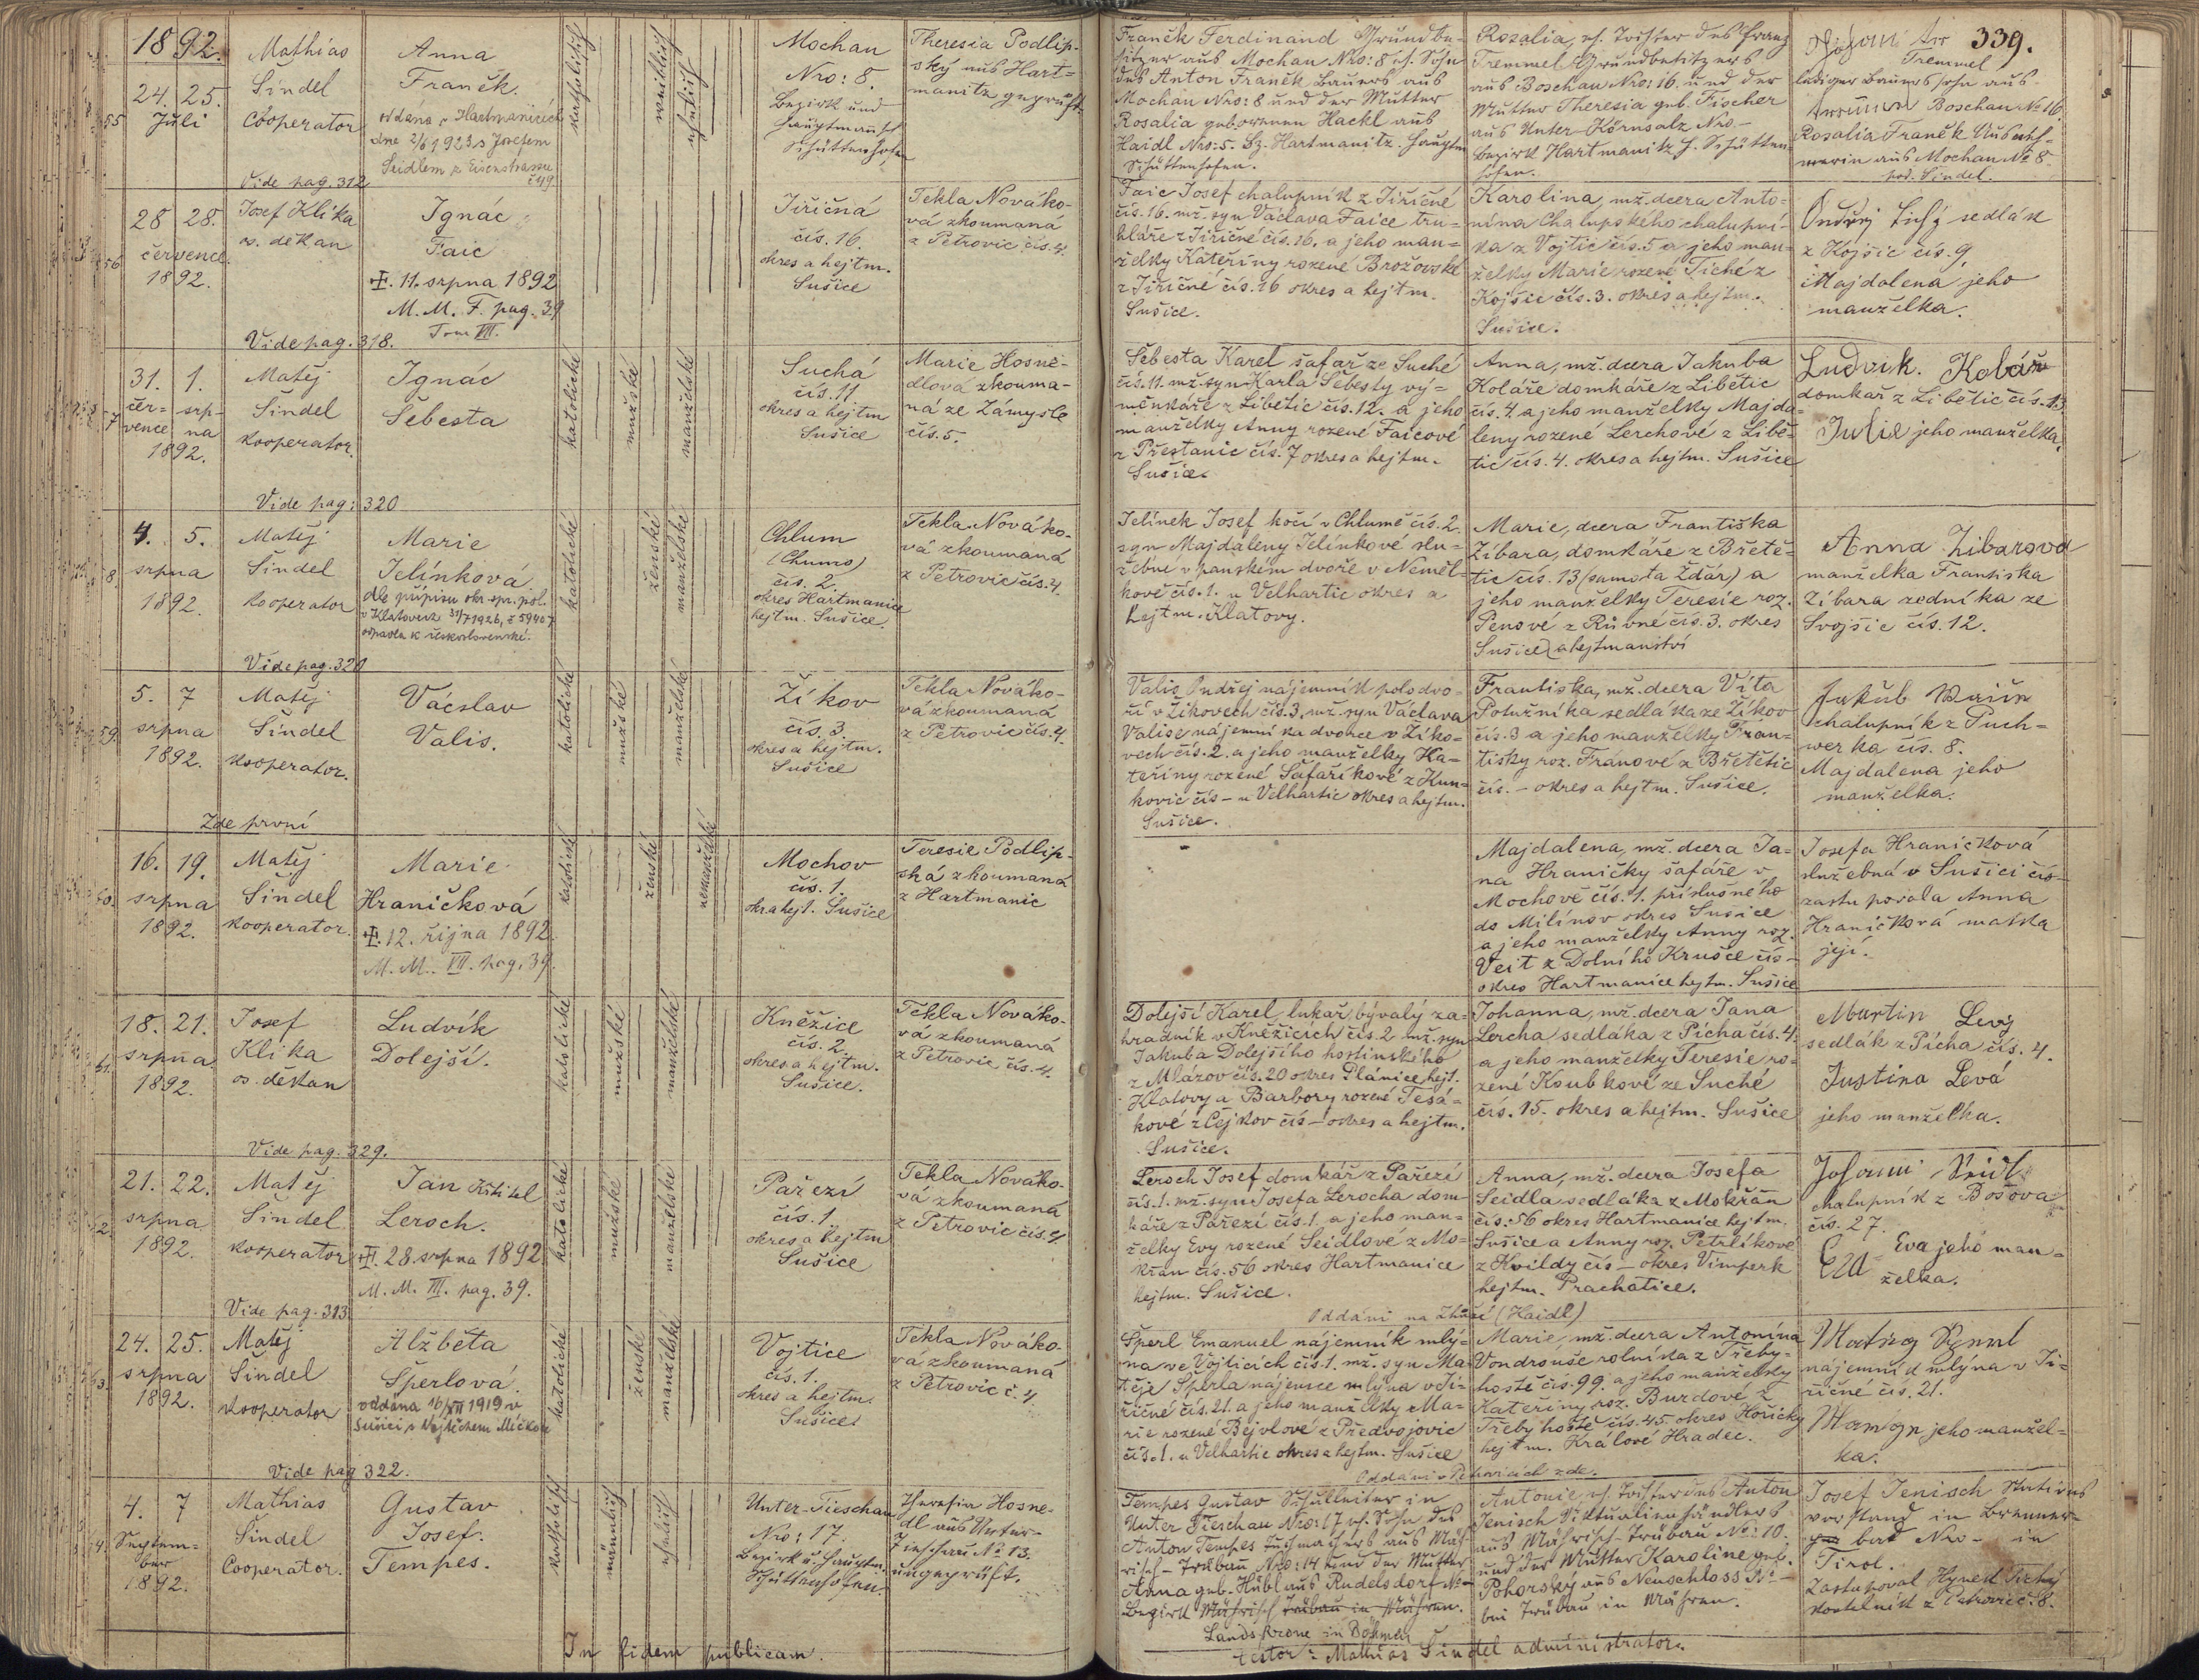 1892.
339.
24. 25.
Juli
Mathias
Šindel
Cooperator
Anna
Franěk.
oddána v Hartmanicích
dne 2/6 1923 s Josefem
Seidlem z Eisenstrassu
č 49
Vide pag. 312
katholisch
weiblich
ehelich
Mochau
Nro: 8
Bezirk und
Hauptmansch
Schüttenhofen
Theresia Podlip-
ský aus Hart-
manitz geprüft.
Franěk Ferdinand Grundbe-
sitzer aus Mochau Nro: 8 eh. Sohn
des Anton Franěk Bauers aus
Mochau Nro: 8 und der Mutter
Rosalia geborenen Hackl aus
Haidl Nro: 5. Bz. Hartmanitz. Hauptm
Schüttenhofen.
Rozalia, eh. Tochter des Franz
Tremmel Grundbesitzers
aus Boschau Nro: 16. und der
Mutter Theresia geb. Fischer
aus Unter-Körnsalz Nro-
Bezirk Hartmanitz H. Schütten
hofen.
Tremmel
lediger Bauerssohn aus
Boschau No 16.
Rosalia Franěk Ausneh-
merin aus Mochau No 8.
pod. Šindel.
56.
28 28.
července
1892.
Josef Klika
os. děkan
Ignác
Faic
11. srpna 1892
M. M. F. pag. 39
Tom VII.
Vide pag. 318.
Jiřičná
čís. 16.
okres a hejtm.
Sušice
Tekla Nováko-
vá zkoumaná
z Petrovic čís. 4.
Faic Josef chalupník z Jiřičné
čís. 16. mž. syn Václava Faice tru-
hláře z Jiřičné čís. 16. a jeho man-
želky Kateřiny rozené Brožovské
z Jiřičné čís. 16 okres a hejtm.
Sušice.
Karolina, mž. dcera Anto-
nína Chalupského chalupní-
ka z Vojtic čís. 5 a jeho man-
želky Marie rozené Tiché z
Kojšic čís. 3. okres a hejtm.
Sušice.
Ondřej Tichý sedlák
z Kojšic čís. 9.
Majdalena jeho
manželka.
31. 1.
čer- srp-
vence na
1892.
Matěj
Šindel
kooperator.
Ignác
Šebesta
Vide pag: 320
katolické
mužské
manželské
Suchá
čís. 11
okres a hejtm
Sušice
Marie Hosne-
dlová zkouma-
ná ze Zámyšle
čís. 5.
Šebesta Karel šafař ze Suché
čís. 11. mž. syn Karla Šebesty vý-
měnkáře z Libětic čís. 12. a jeho
manželky Anny rozené Faicové
z Přestanic čís. 7 okres a hejtm.
Sušice.
Anna, mž. dcera Jakuba
Koláře domkáře z Libětic
čís. 4. a jeho manželky Majda-
leny rozené Lerchové z Libě-
tic čís. 4. okres a hejtm. Sušice
Ludvik. Kolář
domkař z Libětic čís. 13
Julie jeho manželka.
4. 5.
srpna
1892.
Matěj
Šindel
kooperator
Marie
Jelínková.
dle přípisu okr. spr. pol.
v Klatovech 31/7 1926, č 59407
Vide pag. 321
katolické
ženské
manželské
Chlum
(Chumo)
čís. 2.
okres Hartmanice
hejtm. Sušice.
Tekla Nováko-
vá zkoumaná
z Petrovic čís. 4.
Jelínek Josef kočí v Chlumě čís. 2.
syn Majdaleny Jelínkové slu-
žebné v panském dvoře v Neměl-
kově čís. 1. u Velhartic okres a
hejtm. Klatovy.
Marie, dcera Františka
Žibara, domkáře z Břetě-
tic čís. 13 (samota Ždár) a
jeho manželky Teresie roz.
Penové z Růvné čís. 3. okres
Sušice a hejtmanství
Anna Žibarova
manželka Františka
Zíbara zedníka ze
Svojšic čís. 12.
59.
5. 7
srpna
1892.
Matěj
Šindel
kooperator.
Václav
Valis.
Zde první
katolické
mužské
manželské
Žikov
čís. 3.
okres a hejtm.
Sušice
Tekla Nováko-
vá zkoumaná
z Petrovic čís. 4.
Valis Ondřej nájemník polodvo-
ří v Žikovech čís. 3. mž. syn Václava
Valise nájemníka dvorce v Žíko-
vech čís. 2. a jeho manželky Ka-
teřiny rozené Šafaříkové z Kun-
kovic čís – u Velhartic okres a hejtm.
Sušice.
Františka, mž. dcera Víta
Potužníka sedláka ze Žíkov
čís. 3 a jeho manželky Fran-
tišky roz. Fránové z Břetětic
čís. – okres a hejtm. Sušice.
Jakub
chalupník z Puch-
werka čís. 8.
Majdalena jeho
manželka.
16. 19.
srpna
1892.
Matěj
Šindel
kooperator.
Marie
Hraničková
12. října 1892.
M. M. VII. pag. 39.
katolické
ženské
nemanželské
Mochov
čís. 1.
okr a hejt. Sušice
Teresie Podlip-
ská zkoumaná
z Hartmanic
Majdalena, mž. dcera Ja-
na Hraničky šafáře v
Mochově čís. 1. příslušného
do Milínov okres Sušice
a jeho manželky Anny roz.
Veit z Dolního Krušce čís –
okres Hartmanice hejtm. Sušice
Josefa Hraničková
služebná v Sušici čís-
zastupovala Anna
Hraničková matka
její.
61.
18. 21.
srpna
1892.
Josef
Klika
os. děkan
Ludvík
Dolejší.
Vide pag. 329.
katolické
mužské
manželské
Kněžice
čís. 2.
okres a hejtm.
Sušice.
Tekla Nováko-
vá zkoumaná
z Petrovic čís. 4.
Dolejší Karel, lukař bývalý za-
hradník v Kněžicích čís. 2 mž. syn
Jakuba Dolejšího hostinského
z Mlázov čís. 20 okres Plánice hejt.
Klatovy a Barbory rozené Tesá-
kové z Čejkov čís – okres a hejtm.
Sušice.
Johanna, mž. dcera Jana
Lercha sedláka z Pícha čís. 4.
a jeho manželky Teresie ro-
zené Koubkové ze Suché
čís. 15. okres a hejtm. Sušice
Martin Levý
sedlák z Pícha čís. 4.
Justina Levá
jeho manželka.
21. 22.
srpna
1892.
Matěj
Šindel
kooperator
Jan Křtitel
Leroch.
28. srpna 1892
M. M. III. pag. 39.
Vide pag. 313
katolické
mužské
manželské
Pařezí
čís. 1
okres a hejtm
Sušice
Tekla Nováko-
vá zkoumaná
z Petrovic čís. 4.
Leroch Josef domkář z Pařezí
čís. 1. mž. syn Josefa Lerocha dom-
káře z Pařezí čís. 1. a jeho man-
želky Evy rozené Seidlové z Mo-
křan čís. 56 okres Hartmanice
hejtm. Sušice.
Anna, mž. dcera Josefa
Seidla sedláka z Mokřan
čís: 56 okres Hartmanice hejtm.
Sušice a Anny roz. Petrlíkové
z Kvildy čís – okres Vimperk
hejtm. Prachatice.
chalupník z Bošova
čís. 27.
Eva jeho man-
želka.
Oddáni na Zhůří (Haidl)
24. 25.
srpna
1892.
Matěj
Šindel
kooperator
Alžběta
Šperlová.
oddána 16/XII 1919 v
Sušici s Vojtěchem Mičkou
Vide pag 322.
katolické
ženské
manželské
Vojtice
čís. 1.
okres a hejtm.
Sušice.
Tekla Nováko-
vá zkoumaná
z Petrovic č. 4
Šperl Emanuel nájemník mlý-
na ve Vojticích čís. 1. mž. syn Ma-
těje Šperla nájemce mlýna v Ji-
řičné čís. 21. a jeho manželky Ma-
rie rozené Bejvlové z Předvojovic
čís. 1. u Velhartic okres a hejtm. Sušice
Marie, mž. dcera Antonína
Vondrouše rolníka z Třeby-
hoště čís. 99. a jeho manželky
Kateřiny roz. Burdové z
Třebyhoště čís. 45. okres Hořicky
hejtm. Králové Hradec.
nájemník mlýna v Ji-
řičné čís. 21.
jeho manžel-
ka.
Oddáni v Petrovicích zde.
4. 7
Septem-
ber
1892.
Mathias
Šindel
Cooperator.
Gustav
Josef.
Tempes.
katholisch
männlich
ehelich
Unter-Tieschau
Nro: 17.
Bezirk u. Hauptm.
Schüttenhofen
Hosne-
dl aus Unter-
Tieschau No 13.
ungeprüft.
Tempes Gustav Schulleiter in
Unter Tieschau Nro: 17 eh. Sohn des
Anton Tempes Tuchmachers aus Mäh-
risch-Trübau Nro: 14 und der Mutter
Anna geb. Hübl aus Rudelsdorf No –
Bezirk Mährisch Trübau in Mähren.
Landskrone in Böhmen
Antonie, eh. Tochter des Anton
Jenisch Viktualienhändlers
aus Mährisch-Trübau No: 10.
und der Mutter Karoline geb.
Pohorský aus Neuschloss No –
bei Trübau in Mähren.
Josef Jenisch Stations
vorstand in Brenner-
bad Nro – in
Tirol.
Zastupoval Hynek Tichý
kostelník z Petrovic č. 8.
In fidem publicam.
testor: Mathias Šindel administrator.